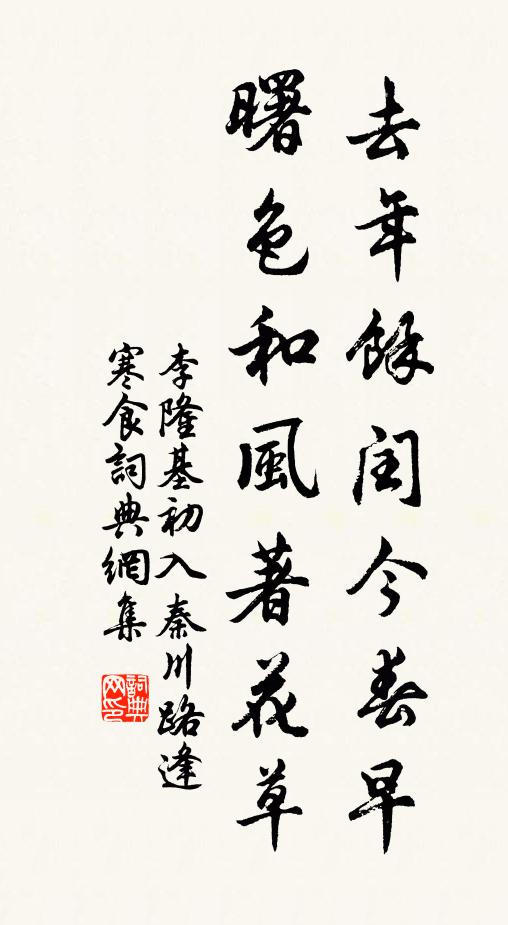 去年餘閏今春早
曙色和風著花草
李隆基初入秦川路逢
寒食詞典網集
詞典
网印